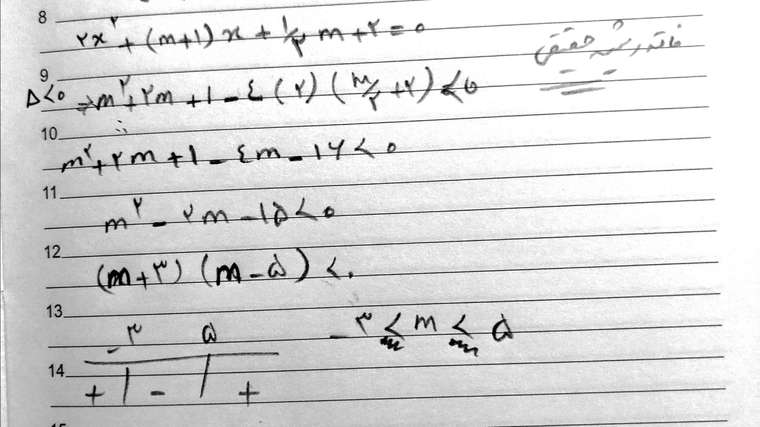 8
۲x² + (m+1) x + ۱/۲ m + ۲ = ۰
فاقد ریشه حقیقی
9
Δ<۰ ⇒ m² + ۲m + ۱ - ٤ (۲) (m/۲ + ۲) < ۰
10
m² + ۲m + ۱ - ٤m - ۱۶ < ۰
11
m² - ۲m - ۱۵ < ۰
12
(m+۳) (m-۵) < ۰
13
-۳ ۵ -۳ < m < ۵
14
+ | - | +